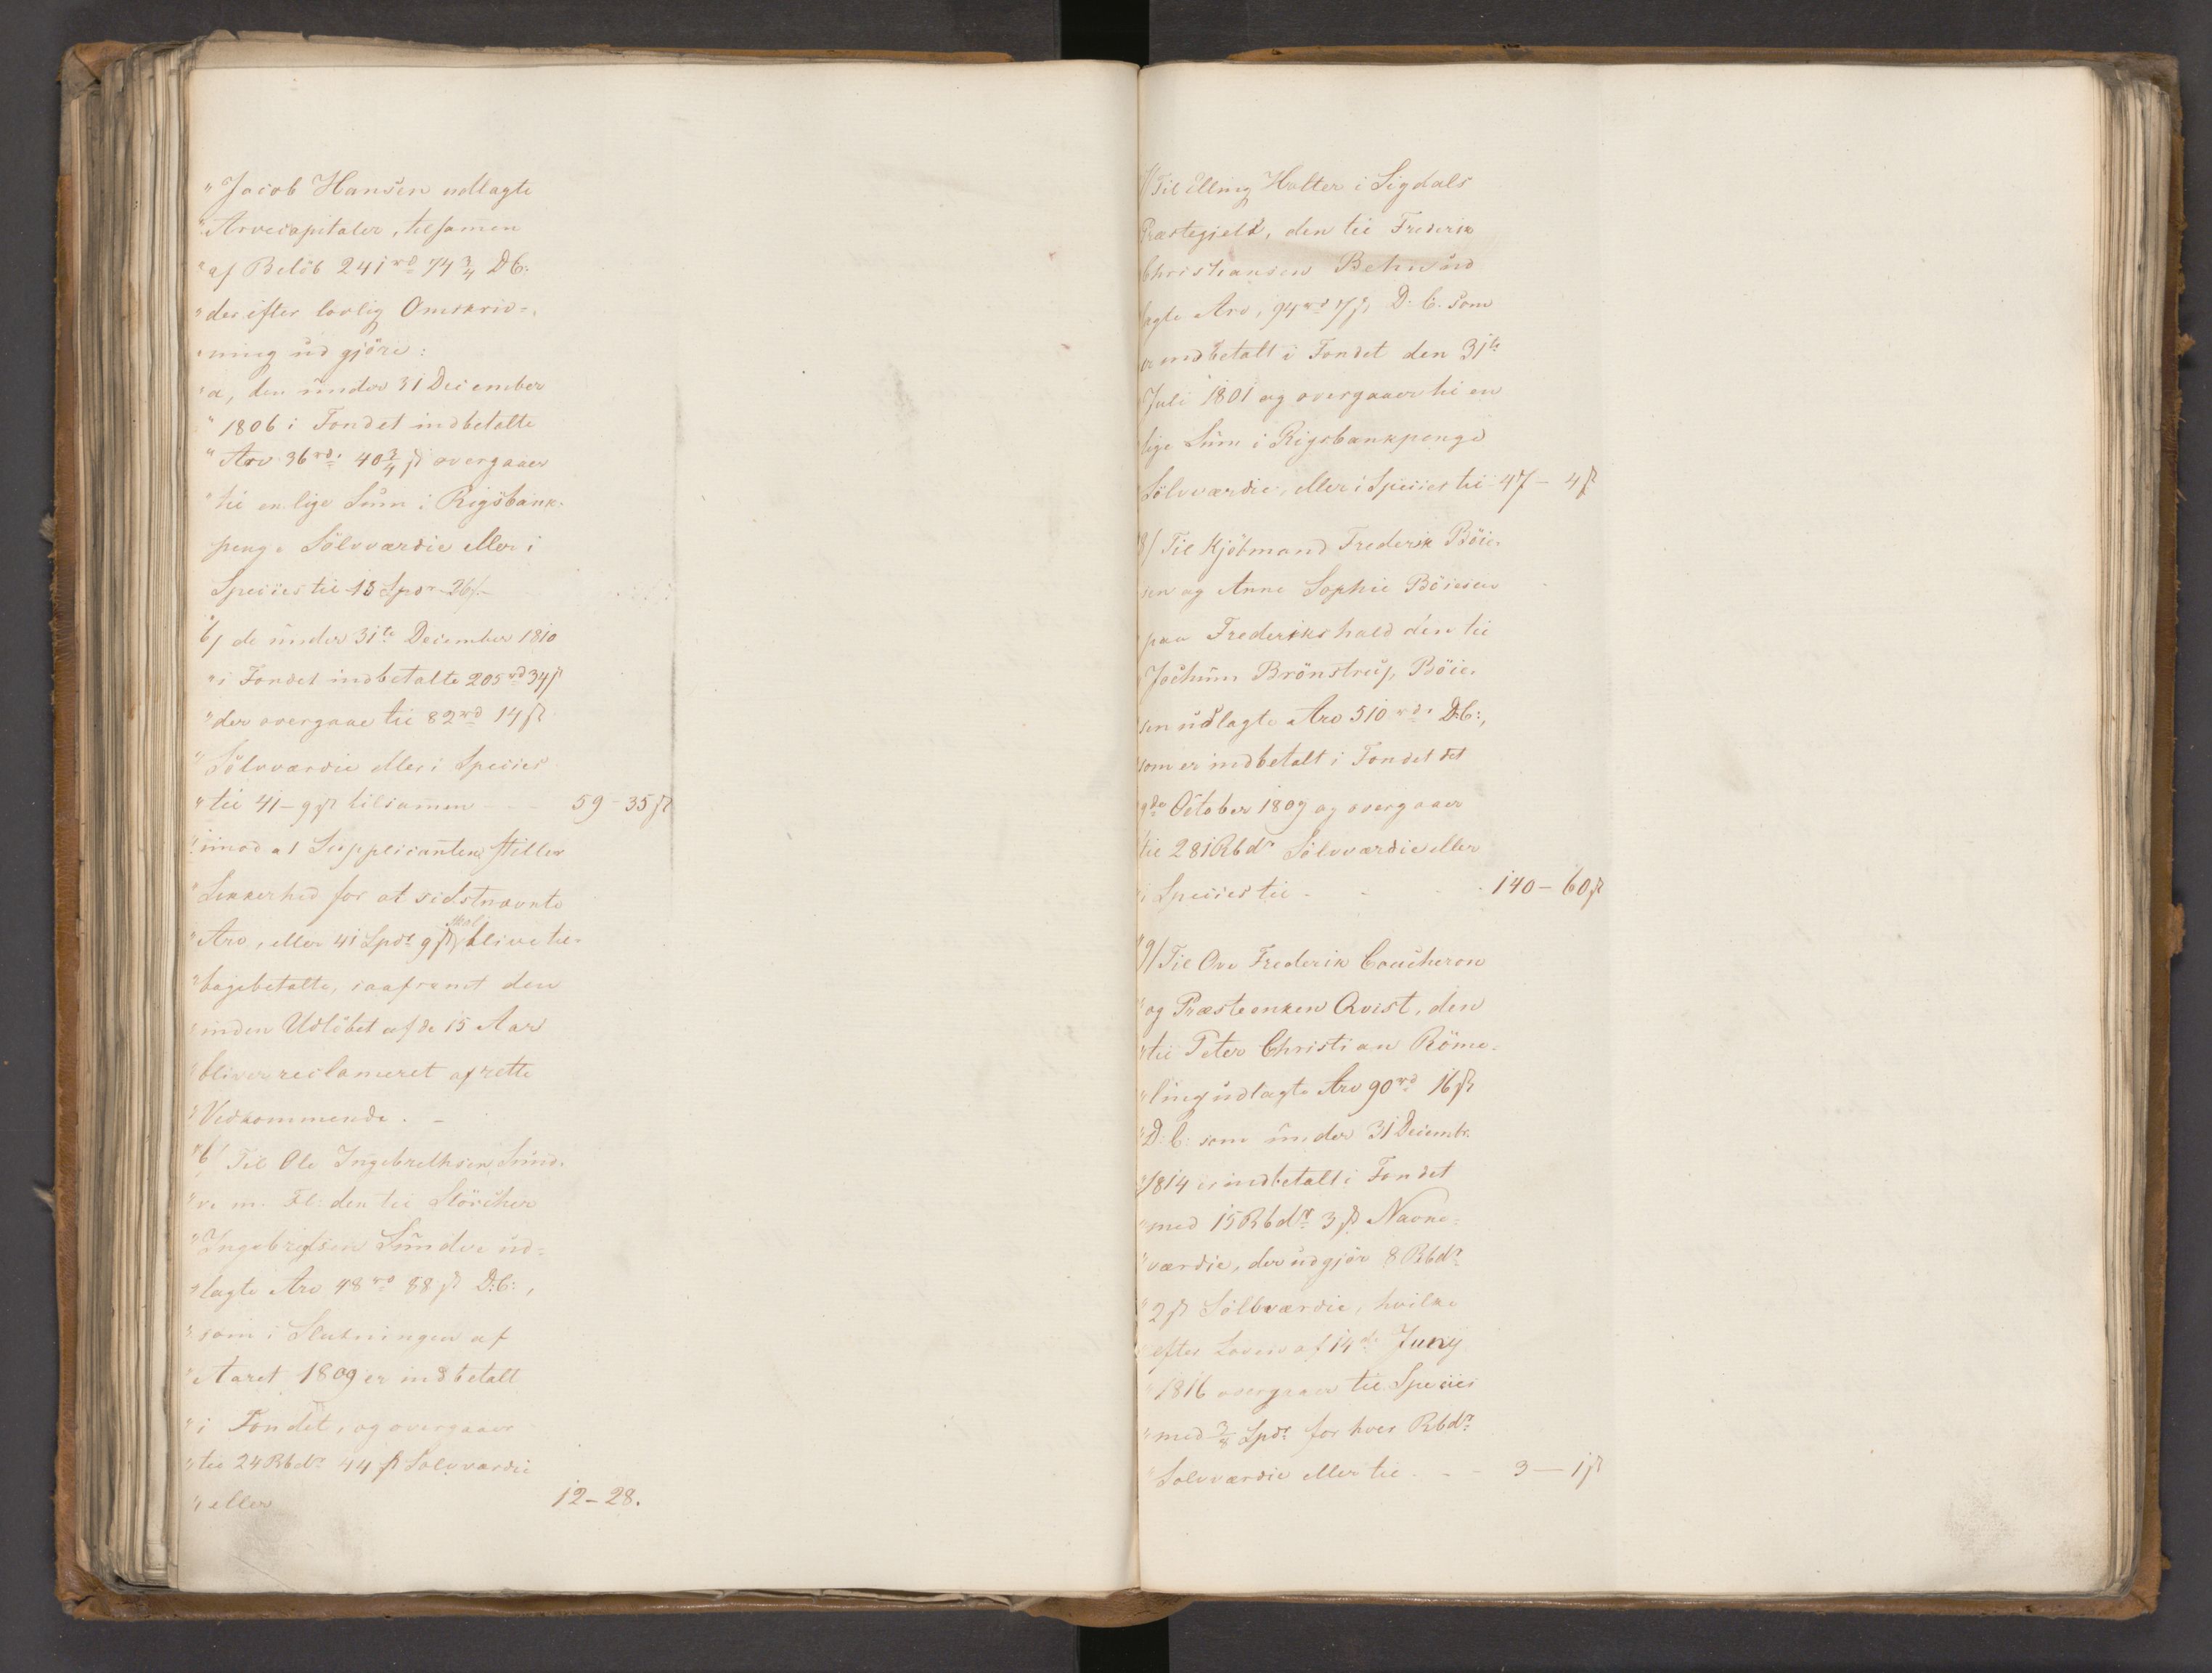 "Jacob Hansen udlagte
"Arvecapitaler, tilsamen
"af Belöb 241 rd 74 3/4 DC:
"der efter lovlig Omskriv-
"ning üd gjöre:
"a, den ünder 31 December
"1806 i Fondet indbetalte
"Arv 36 rd. 40 3/4 ß overgaaer
"til en lige Süm i Rigsbank-
penge Sölvværdie eller i
Species til 18 Spdr 26ß
"b/ de ünder 31te December 1810
"i Fondet indbetalte 205 rd 34ß
"der overgaae til 82 rd 14 ß
"Sölvværdie eller i Species
"til 41 - 9 ß tilsammen - - 59 - 35 ß
"imod at Süpplicanten stiller
"Sikkerhed for at sidstnævnte
"Arv, eller 41 Spdr 9 ß skal blive til-
"bagebetalte, saafremt den
"inden Udlöbet af de 15 Aar
"bliver reclameret af rette
"Vedkommende. -
"6/ Til Ole Ingebrethsen Sünd-
"re m. Fl: den til Störcher
"Ingebrethsen Sündre üd-
"lagte Arv 48 rd 88 ß D:C:,
"som i Slutningen af
"Aaret 1809 er indbetalt
"i Fondet, og overgaaer
"til 24 Rbdr 44 ß Sölvværdie
"eller 12 - 28.
7/ Til Elling Holter i Sigdals
Præstegjeld, den til Frederik
Christiansen üd
lagte Arv, 94 rd 7 ß D. C. som
er indbetalt i Fondet den 31te
Juli 1801 og overgaaer til en
lige Süm i Rigsbankpenge
Sölvværdie, eller i Species til 47 - 4 ß
8/ Til Kjöbmand Frederik Böie-
sen og Anne Sophie Böiesen
paa Frederikshald den til
Jochüm Brönstrup Böie-
sen üdlagte Arv 510 rd. D:C:,
som er indbetalt i Fondet det
9de October 1809 og overgaaer
til 281 Rbdr Sölvværdie eller
i Species til - - - 140 - 60 ß
"9/ Til Ove Frederik Coucheron
"og Præsteenken Qvist, den
"til Peter Christian Röme-
"ling üdlagte Arv 90 rd 16 ß
"D: C: som ünder 31 Decembr.
"1814 er indbetalt i Fondet
"med 15 Rbdr 3 ß Navne-
"værdie, der üdgjör 8 Rbdr
"2 ß Sölvværdie, hvilke
"efter Loven af 14de Juny
"1816 overgaaer til Species
"med 3/8 Spdr for hver Rbdr
"Sölvværdie eller til - - - 3 - 1 ß